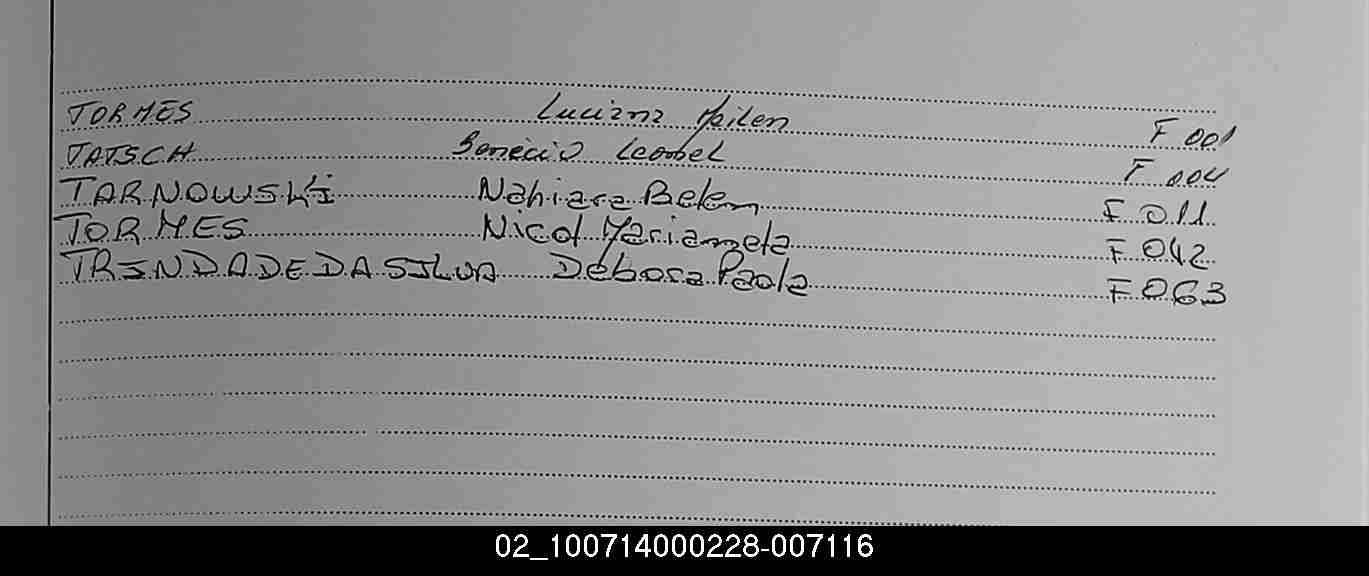 TORMES Luciana Mailen F 001
TATSCH Benecio Leonel F 004
TARNOWSKI Nahiara Belem F 011
TORMES Nicol Marianzela F 042
TRINDADE DA SILVA Debora Paola F 063
02_100714000228-007116